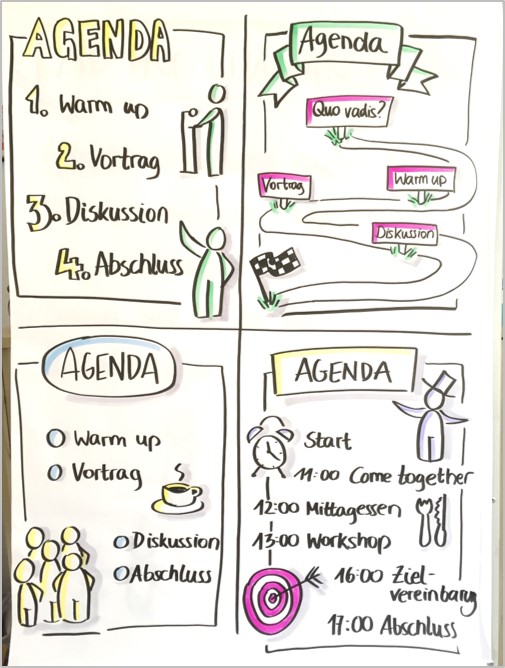 AGENDA
1. Warm up
2. Vortrag
3. Diskussion
4. Abschluss
Agenda
Quo vadis?
Warm up
Vortrag
Diskussion
AGENDA
Warm up
Vortrag
Diskussion
Abschluss
AGENDA
Start
11:00 Come together
12:00 Mittagessen
13:00 Workshop
16:00 Ziel-
vereinbarung
17:00 Abschluss